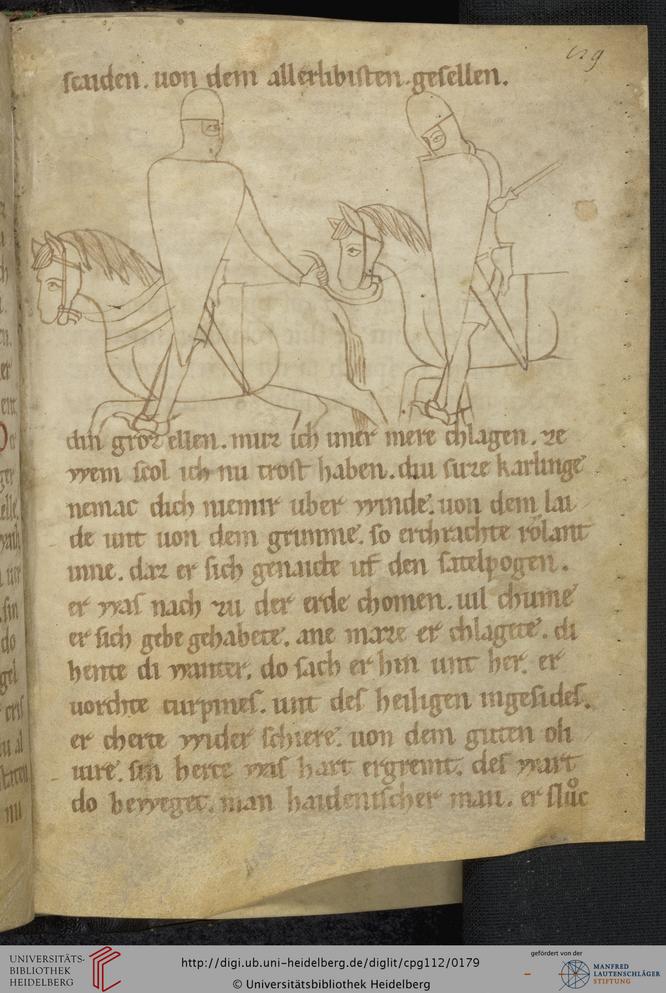 scaiden. uon dem allerlibisten. gesellen.
din groz ellen. muz ich imer mere chlagen. ze
wem scol ich nu trost haben. diu suze karlinge
nemac dich niemir uber winde. uon dem lai
de unt uon dem grimme. so erchrachte rolant
inne. daz er sich genaicte uf den satelpogen.
er was nach zu der erde chomen. uil chume
er sich gehabete. ane maze er chlagete. di
hente di wanter. do sach er hin unt her. er
uorchte turpines. unt des heiligen ingesides.
er cherte wider schiere. uon dem guten oli
uire. sin herce was hart ergremt. des wart
do beweget. man haidenischer man. er slůc
UNIVERSITÄTS-
BIBLIOTHEK
HEIDELBERG
http://digi.ub.uni-heidelberg.de/diglit/cpg112/0179
© Universitätsbibliothek Heidelberg
gefördert von der
MANFRED
LAUTENSCHLÄGER
STIFTUNG